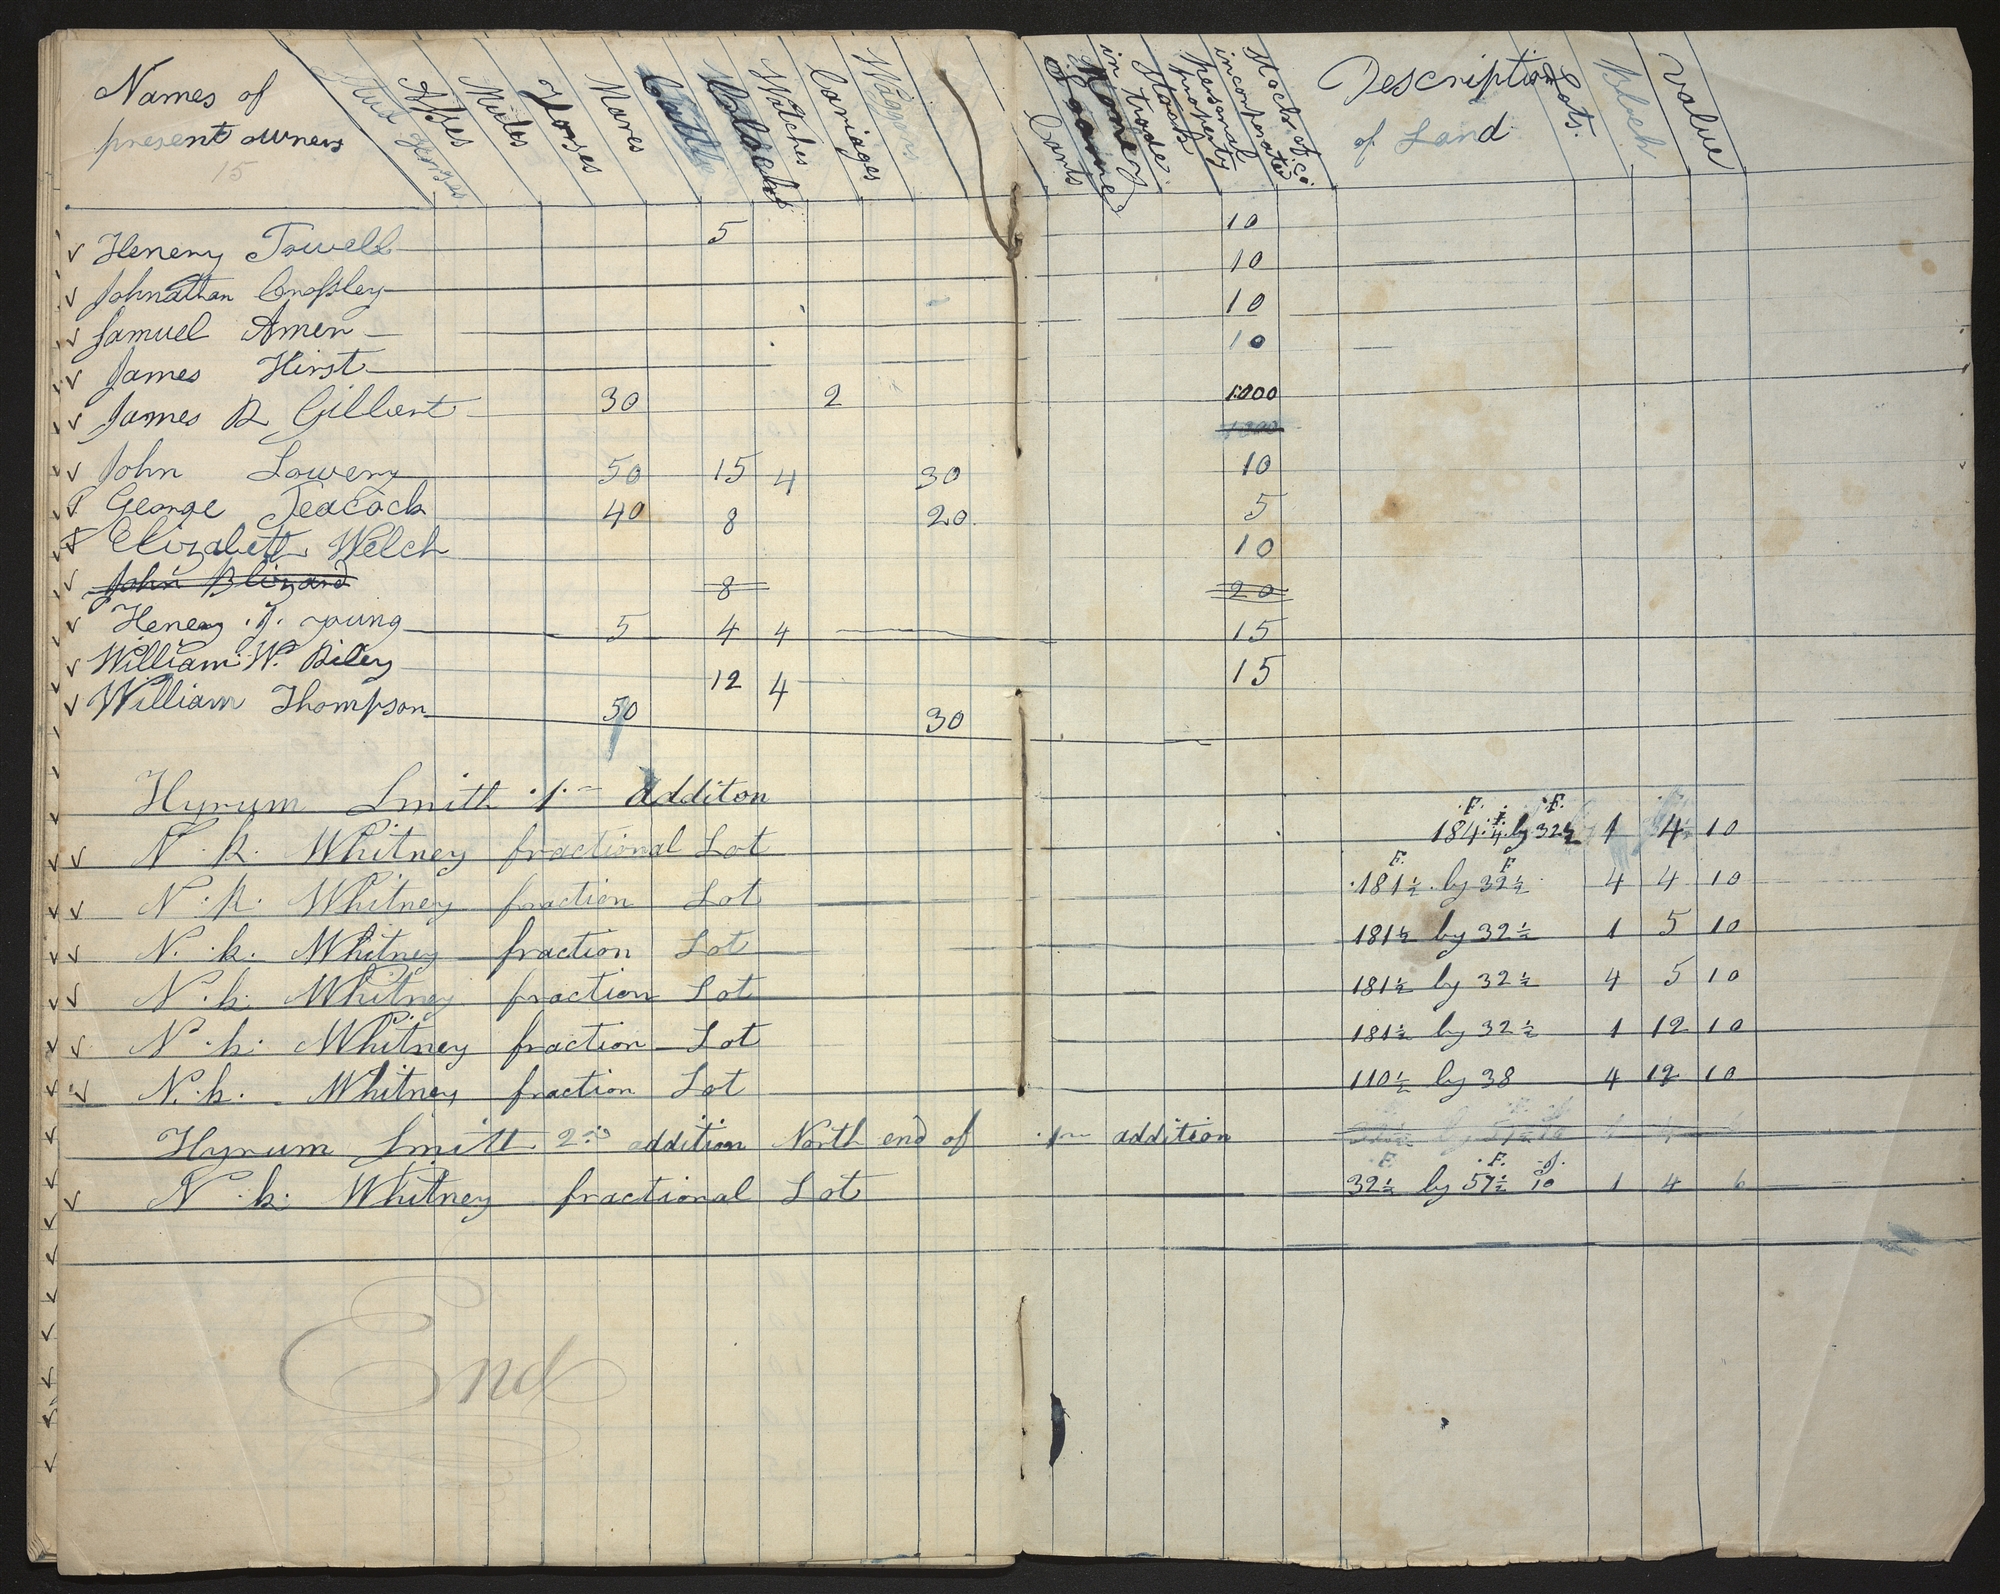 Names of present owners
15
Stud Horses
Asses
Mules
Horses
Mares
Cattle
Clocks
Watches
Cariages
Waggons
Carts
Money Loaned
in trade
Stock
personal property
stocks of co. incorporated
Description of Land
Lots.
Block
Value
Henery Towell 5 10
Johnathan Crossley 10
Samuel Amen 10
James Hirst 10
James R Gilbert 30 2 1000
1000
John Lowery 50 15 4 30 10
George Peacock 40 8 20 5
Elizabeth Welch 10
John Blizard 8 20
Henery J. young 5 4 4 15
William W. Riley 12 4 15
William Thompson 50 30
Hyrum Smith 1 additon
N. K. Whitney fractional Lot 184. by 32½ 1 4 10
N. K. Whitney fraction Lot 181½ by 32½ 4 4 10
N. k. Whitney fraction Lot 181½ by 32½ 1 5 10
N. k. Whitney fraction Lot 181½ by 32½ 4 5 10
N. k. Whitney fraction Lot 181½ by 32½ 1 12 10
N. k. Whitney fraction Lot 110½ by 38 4 12 10
Hyrum Smith 2nd addition North end of 1 addition
N. k. Whitney fractional Lot 32½ by 57½ 10 1 4 6
End